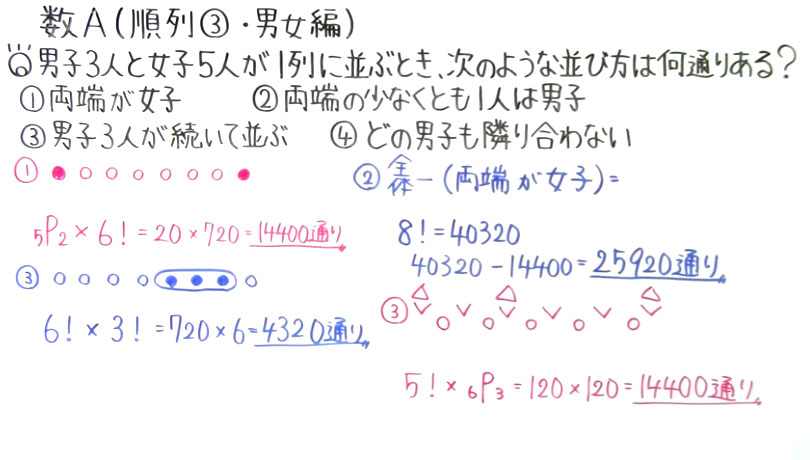 数A(順列③・男女編)
男子3人と女子5人が1列に並ぶとき、次のような並び方は何通りある?
①両端が女子 ②両端の少なくとも1人は男子
③男子3人が続いて並ぶ ④どの男子も隣り合わない
①
₅P₂×6!=20×720=14400通り
②全体-(両端が女子)=
8!=40320
40320-14400=25920通り
③
6!×3!=720×6=4320通り
③
5!×₆P₃=120×120=14400通り